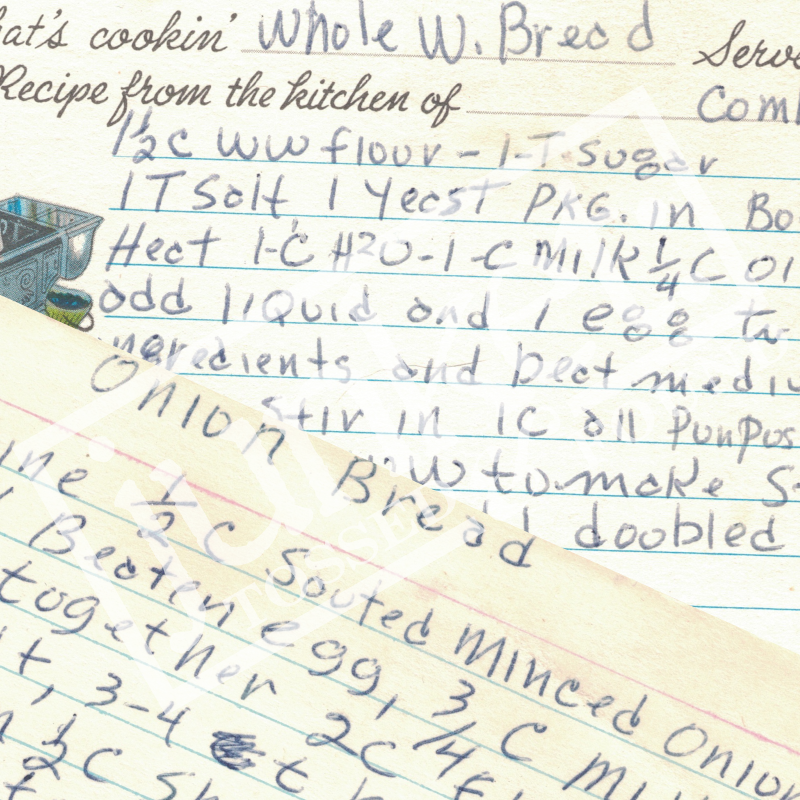 at's cookin' Whole W. Bread Serve
Recipe from the kitchen of Com
1 1/2 C WW flour - 1-T. Sugar
1 T Salt 1 Yeast PKG. in Bo
Heat 1-C H2O - 1-C Milk 1/4 C Oi
add liquid and 1 egg to
ingredients and beat mediu
Stir in 1C all Punpos
WW to make S
doubled
Onion Bread
ine 1/2 C Sauted Minced Onion
1 Beaten egg, 3/4 C Mil
together 2C
t, 3-4 t
1/2 C Sh
TOSSED